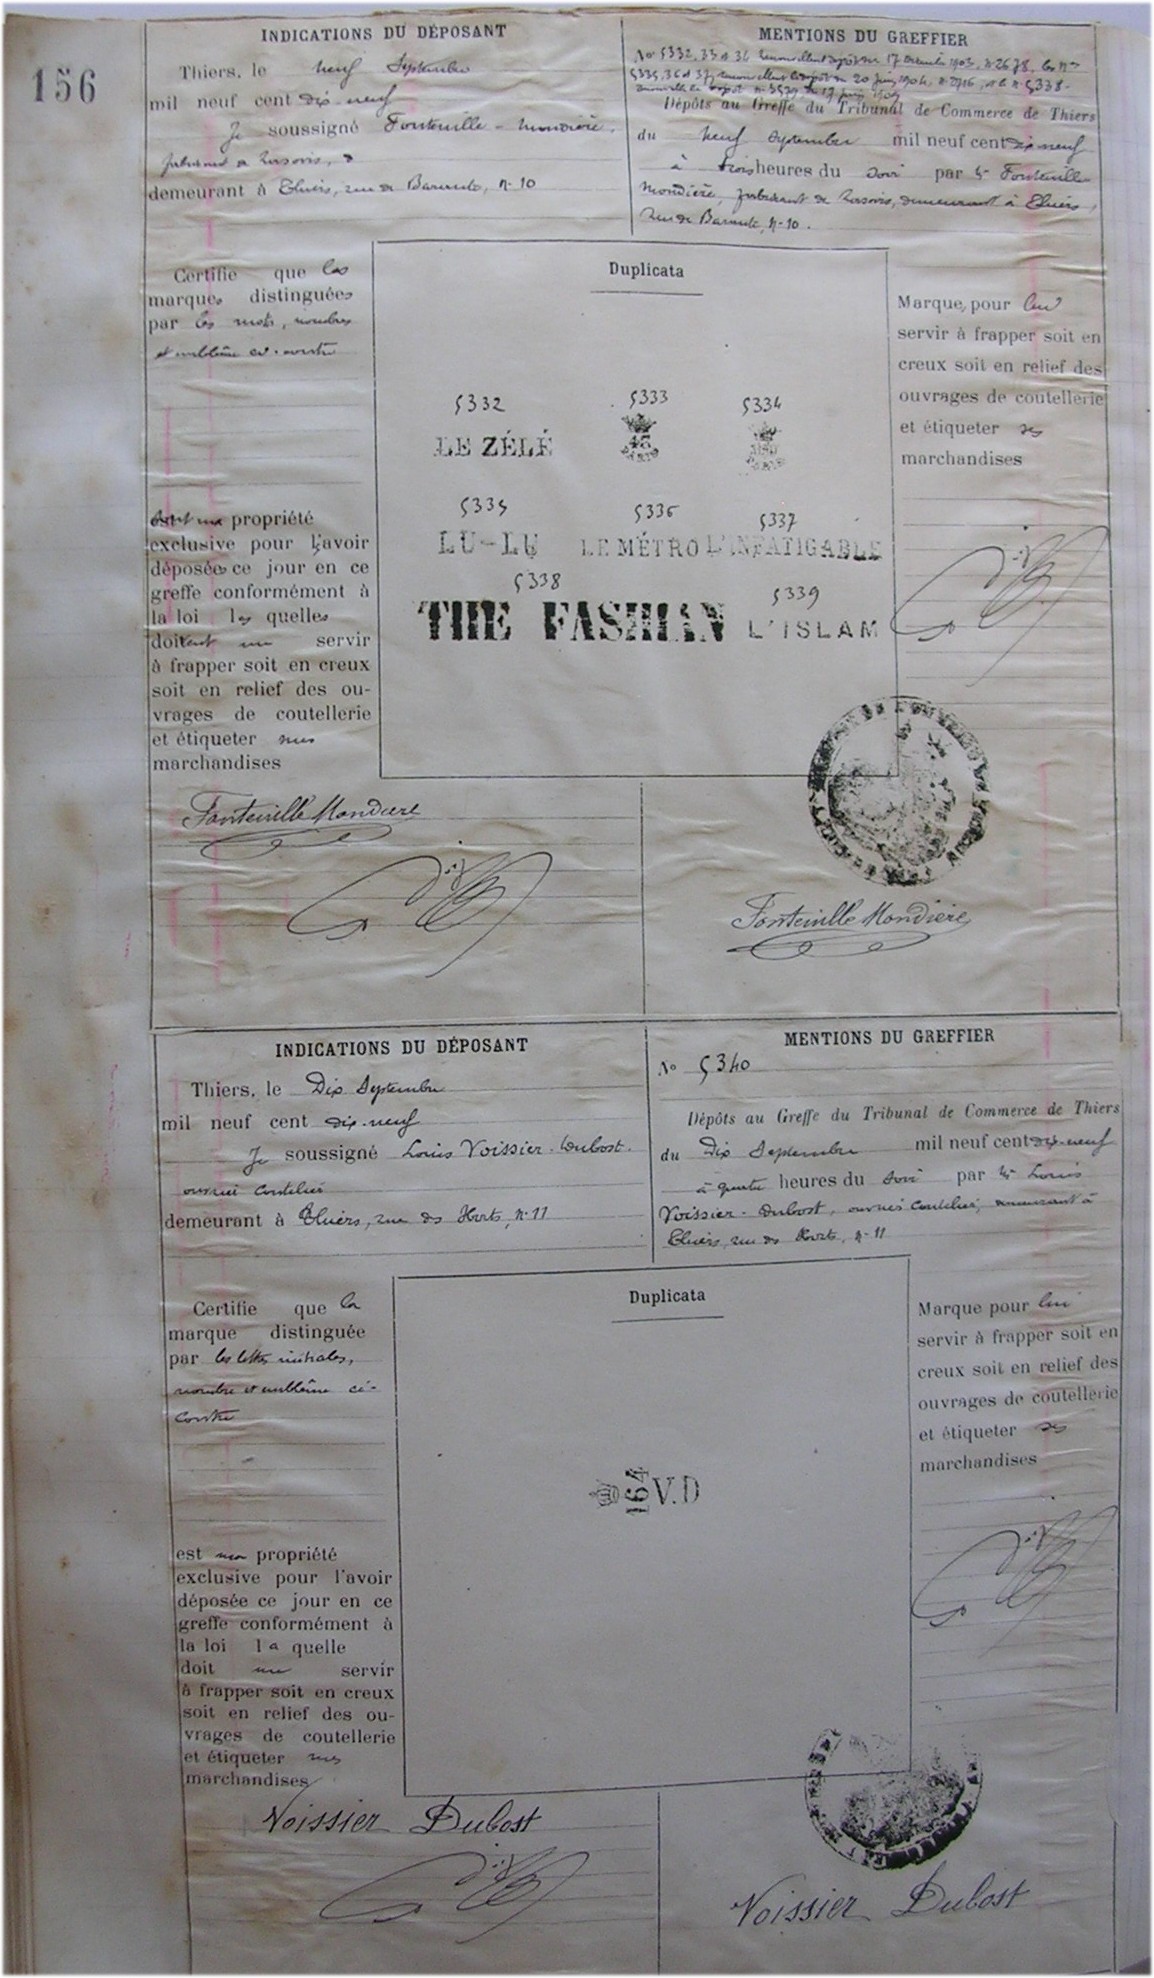 156
INDICATIONS DU DÉPOSANT
Thiers, le neuf Septembre
mil neuf cent dix-neuf
Je soussigné Fonteneille-Mondière,
fabricant de rasoirs, 
demeurant à Thiers, rue de Barante, n° 10
MENTIONS DU GREFFIER
Nos 5332, 33 et 34 renouvellent dépôt du 17 1903, n° 2678, les nos
5335, 36 et 37, renouvellent le dépôt du 20 juin 1904, n° 2716, et le n° 5338
Dépôts au Greffe du Tribunal de Commerce de Thiers
du neuf Septembre mil neuf cent dix-neuf
à trois heures du soir par Mr Fonteneille
Mondière, fabricant de rasoirs, demeurant à Thiers,
rue de Barante, n° 10.
Certifie que les
marques distinguées
par les mots, nombres
et emblême ci-contre
sont ma propriété
exclusive pour l'avoir
déposées ce jour en ce
greffe conformément à
la loi lesquelles
doivent me servir
à frapper soit en creux
soit en relief des ou-
vrages de coutellerie
et étiqueter mes
marchandises
Duplicata
5332 5333 5334
LE ZÉLÉ PARIS PARIS
5335 5336 5337
LU-LU LE MÉTRO L'INFATIGABLE
5338 5339
THE FASHIAN L'ISLAM
Marque, pour lui
servir à frapper soit en
creux soit en relief des
ouvrages de coutellerie
et étiqueter ses
marchandises
Fonteneille Mondière
Fonteneille Mondière
INDICATIONS DU DÉPOSANT
Thiers, le Dix Septembre
mil neuf cent dix-neuf
Je soussigné Louis Voissier-Dubost.
ouvrier coutelier
demeurant à Thiers, rue des Horts, n° 11
MENTIONS DU GREFFIER
No 5340
Dépôts au Greffe du Tribunal de Commerce de Thiers
du Dix Septembre mil neuf cent dix-neuf
à quatre heures du soir par Mr Louis
Voissier-Dubost, ouvrier coutelier, demeurant à
Thiers, rue des Horts, n° 11
Certifie que la
marque distinguée
par les lettres initiales,
nombre et emblême ci-
contre
est ma propriété
exclusive pour l'avoir
déposée ce jour en ce
greffe conformément à
la loi laquelle
doit me servir
à frapper soit en creux
soit en relief des ou-
vrages de coutellerie
et étiqueter mes
marchandises
Duplicata
164 V.D
Marque pour lui
servir à frapper soit en
creux soit en relief des
ouvrages de coutellerie
et étiqueter ses
marchandises
Voissier Dubost
Voissier Dubost